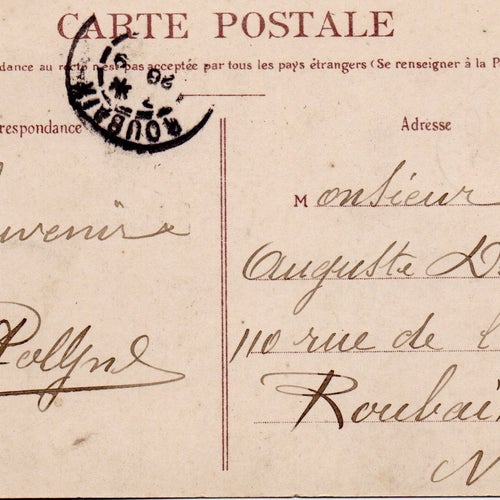 CARTE POSTALE
dance au recto n'est pas acceptée par tous les pays étrangers (Se renseigner à la P
ROUBAIX
respondance
Adresse
uvenir
Monsieur
Auguste D
110 rue de l
Roubai
N